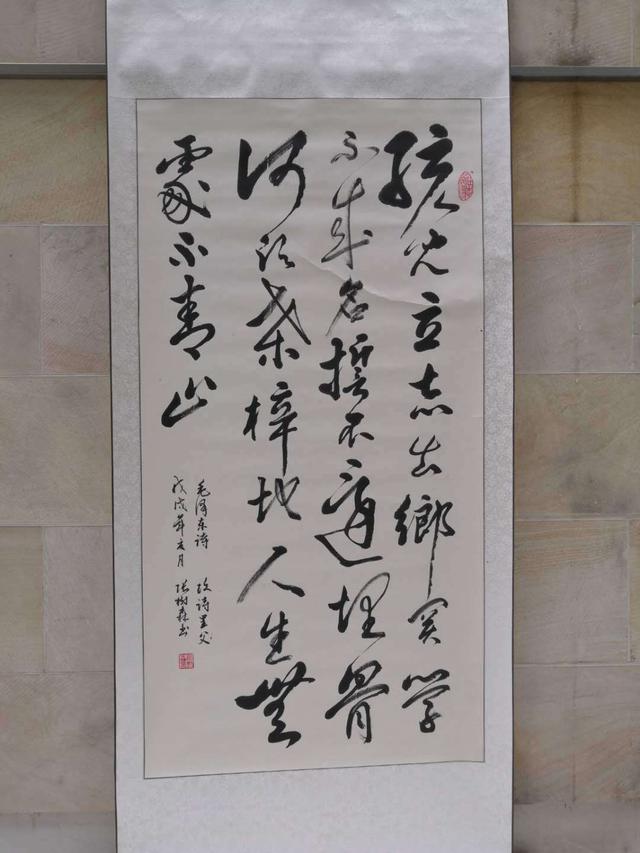 孩兒立志出鄉関学
不成名誓不還埋骨
何須桑梓地人生無
處不青山
毛泽东诗 改诗呈父
戊戌年月 张树森书